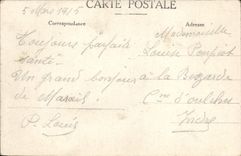 CARTE POSTALE
5 Mars 1915
Correspondance
Adresse
Mademoiselle
Toujours parfaite
Louise
santé
Un grand bonjour à la
de
Cne d'oulches
P. Louis
Indre